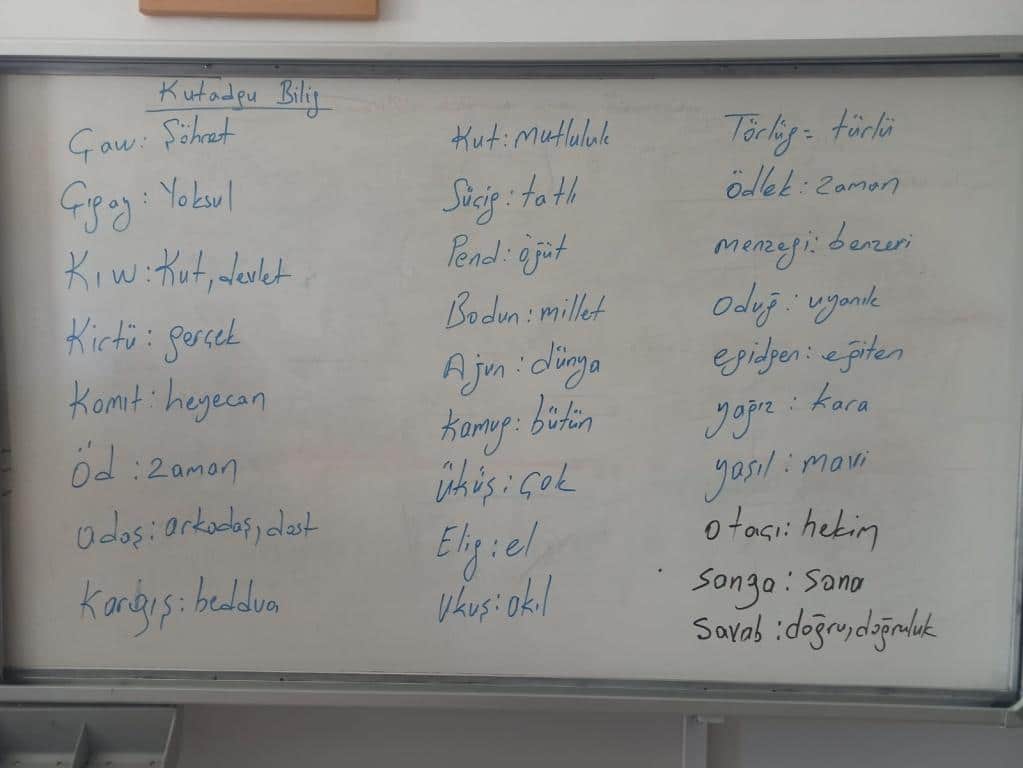 Kutadgu Bilig
Çaw: Şöhret
Çıgay: Yoksul
Kıw: Kut, devlet
Kirtü: gerçek
Komıt: heyecan
Öd: zaman
Adaş: arkadaş, dost
Kargış: beddua
Kut: mutluluk
Süçig: tatlı
Pend: öğüt
Bodun: millet
Ajun: dünya
Kamug: bütün
Üküş: çok
Elig: el
Ukuş: akıl
Törlüg = türlü
ödlek: zaman
menzegi: benzeri
oduğ: uyanık
egidgen: eğiten
yağız: kara
yaşıl: mavi
otaçı: hekim
sanga: sana
savab: doğru, doğruluk